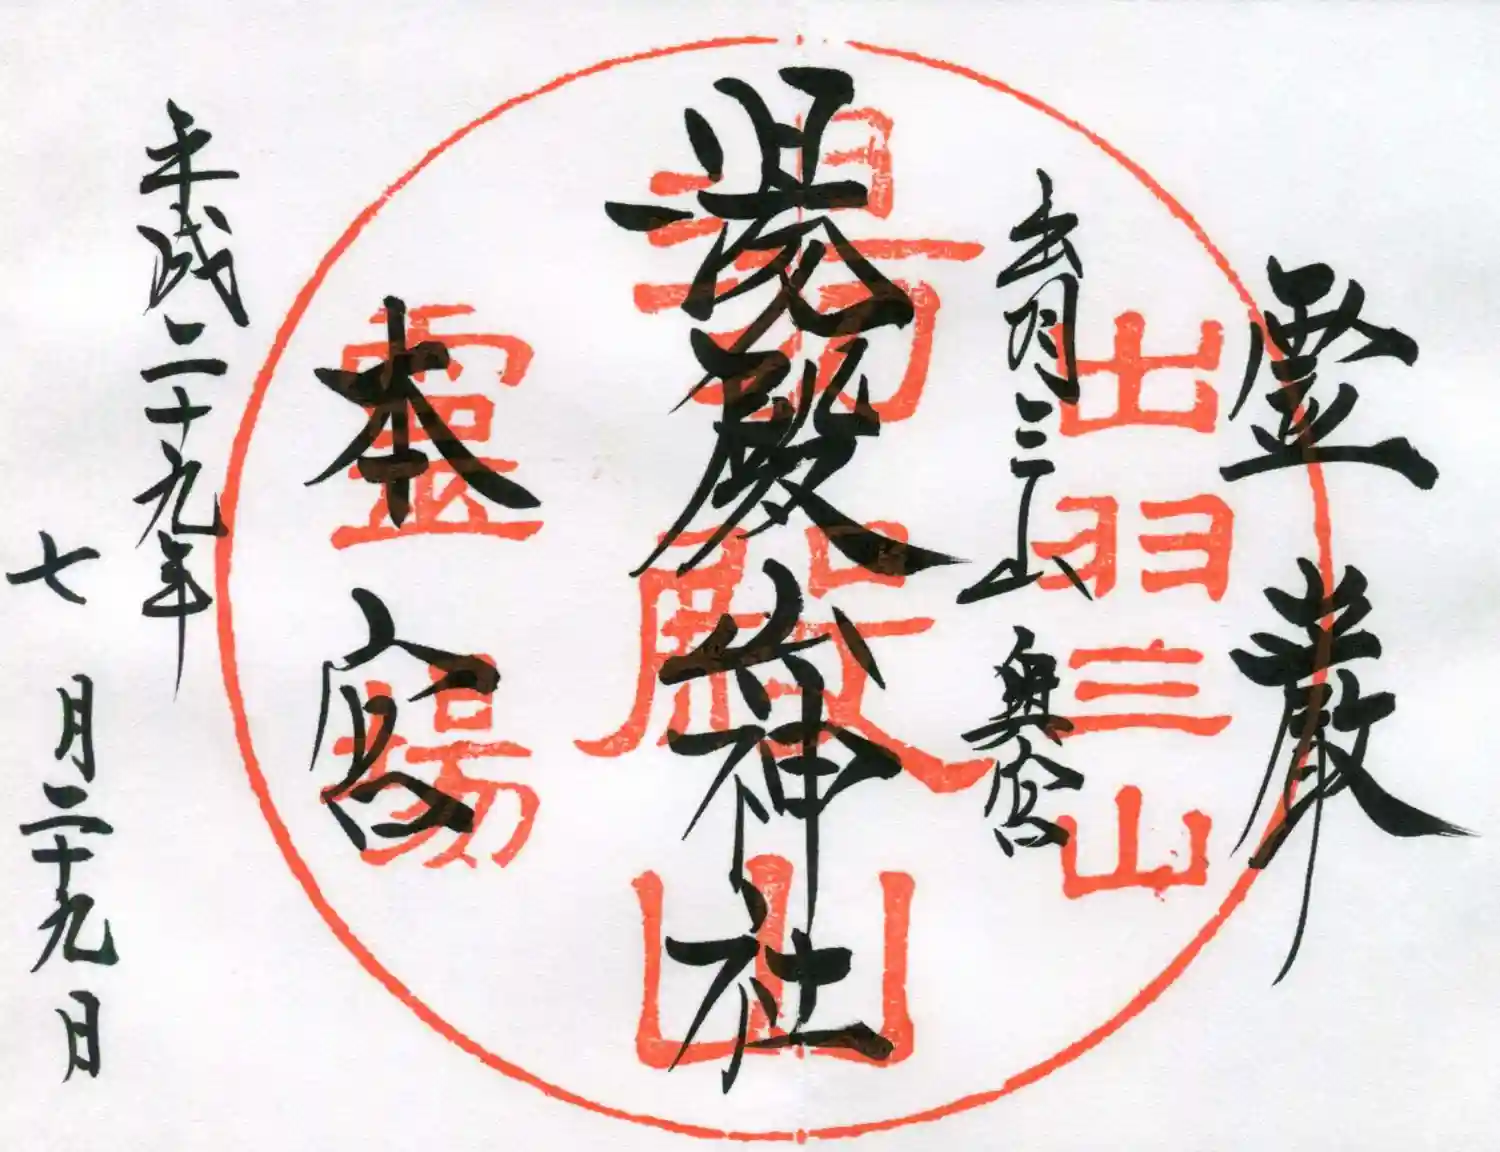 霊巌
出羽三山奥宮
出羽三山
湯殿山神社
湯殿山
本宮
靈場
平成二十九年
七月二十九日